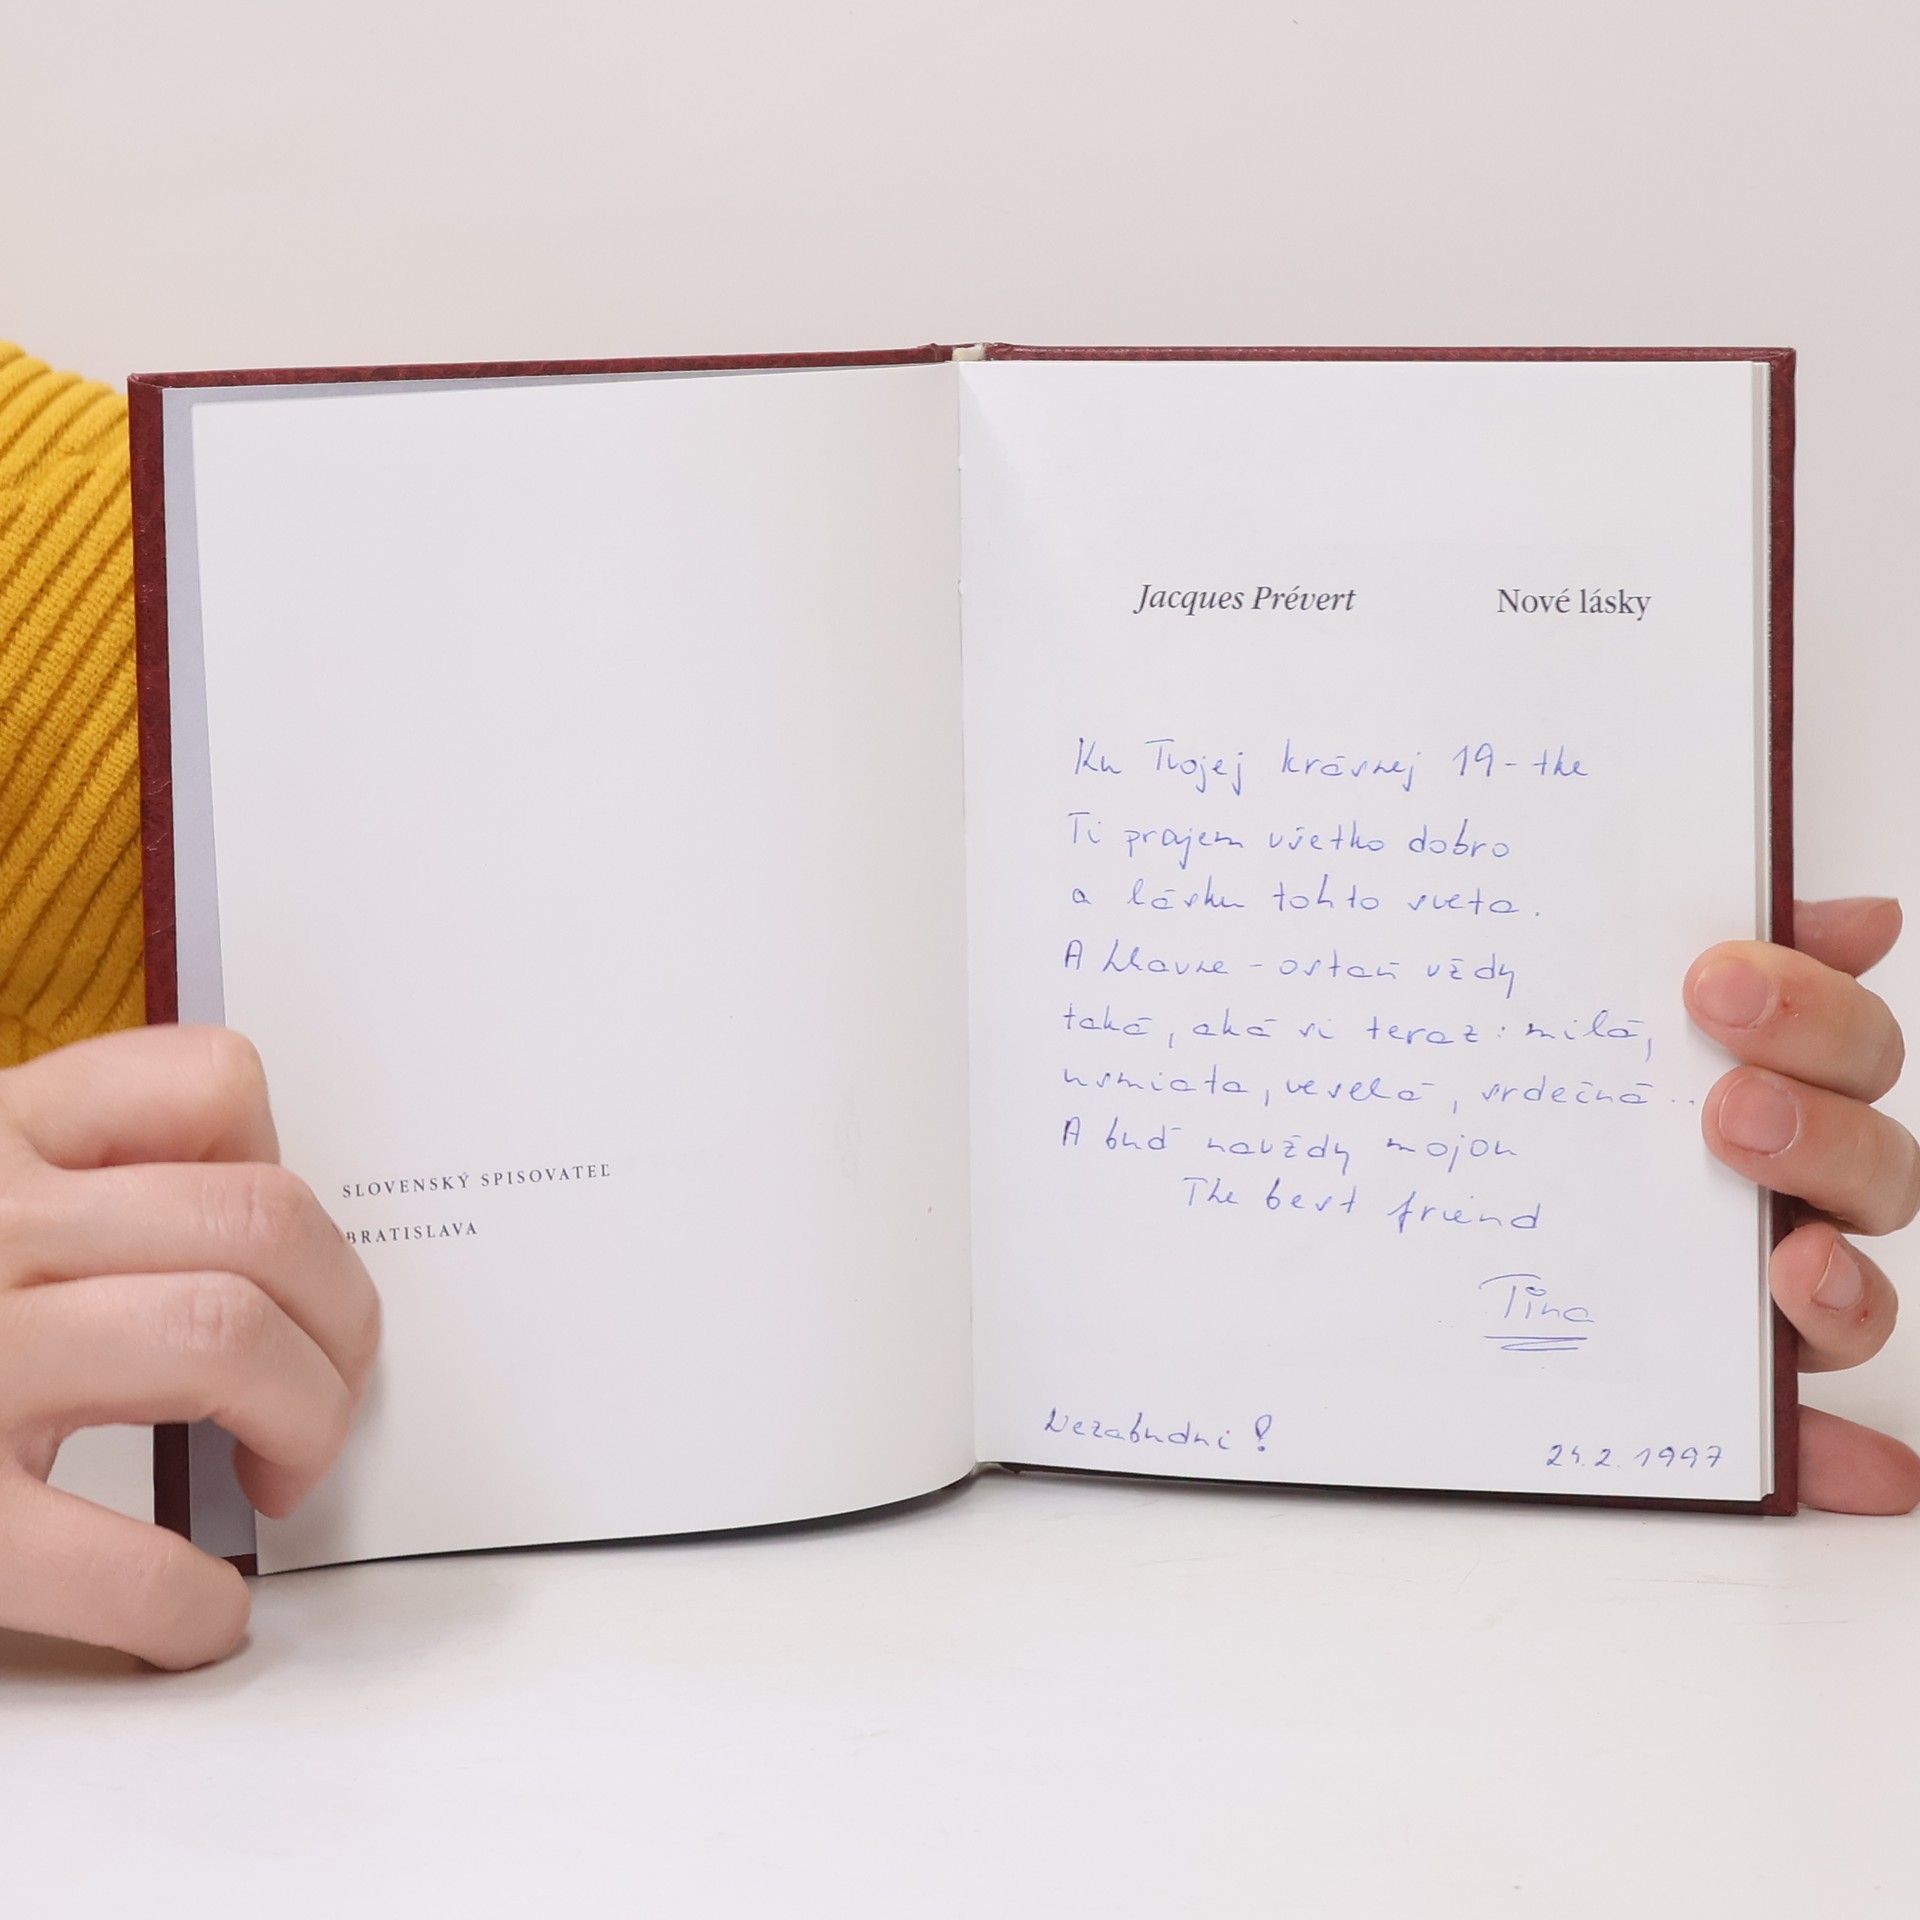 SLOVENSKÝ SPISOVATEĽ
BRATISLAVA
Jacques Prévert Nové lásky
Ku Tvojej krásnej 19-tke
Ti prajem všetko dobro
a lásku tohto sveta.
A hlavne - ostaň vždy
taká, aká si teraz: milá,
usmiata, veselá, srdečná..
A buď navždy mojou
The best friend
Tina
Nezabudni!
24.2.1997